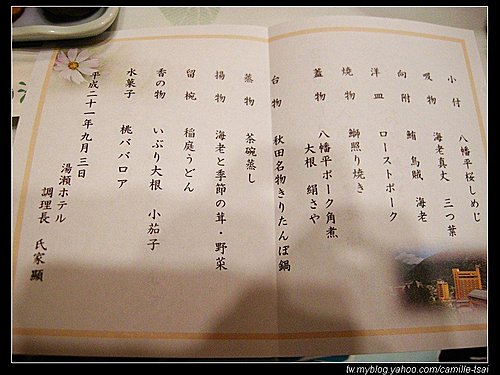 小付 八幡平桜しめじ
吸物 海老真丈 三つ葉
向附 鮪 烏賊 海老
洋皿 ローストポーク
焼物 鰤照り焼き
蓋物 八幡平ポーク角煮
大根 絹さや
台物 秋田名物きりたんぽ鍋
蒸物 茶碗蒸し
揚物 海老と季節の茸・野菜
留椀 稲庭うどん
香の物 いぶり大根 小茄子
水菓子 桃ババロア
平成二十一年九月三日
湯瀬ホテル
調理長 氏家 顯
tw.myblog.yahoo.com/camille-tsai